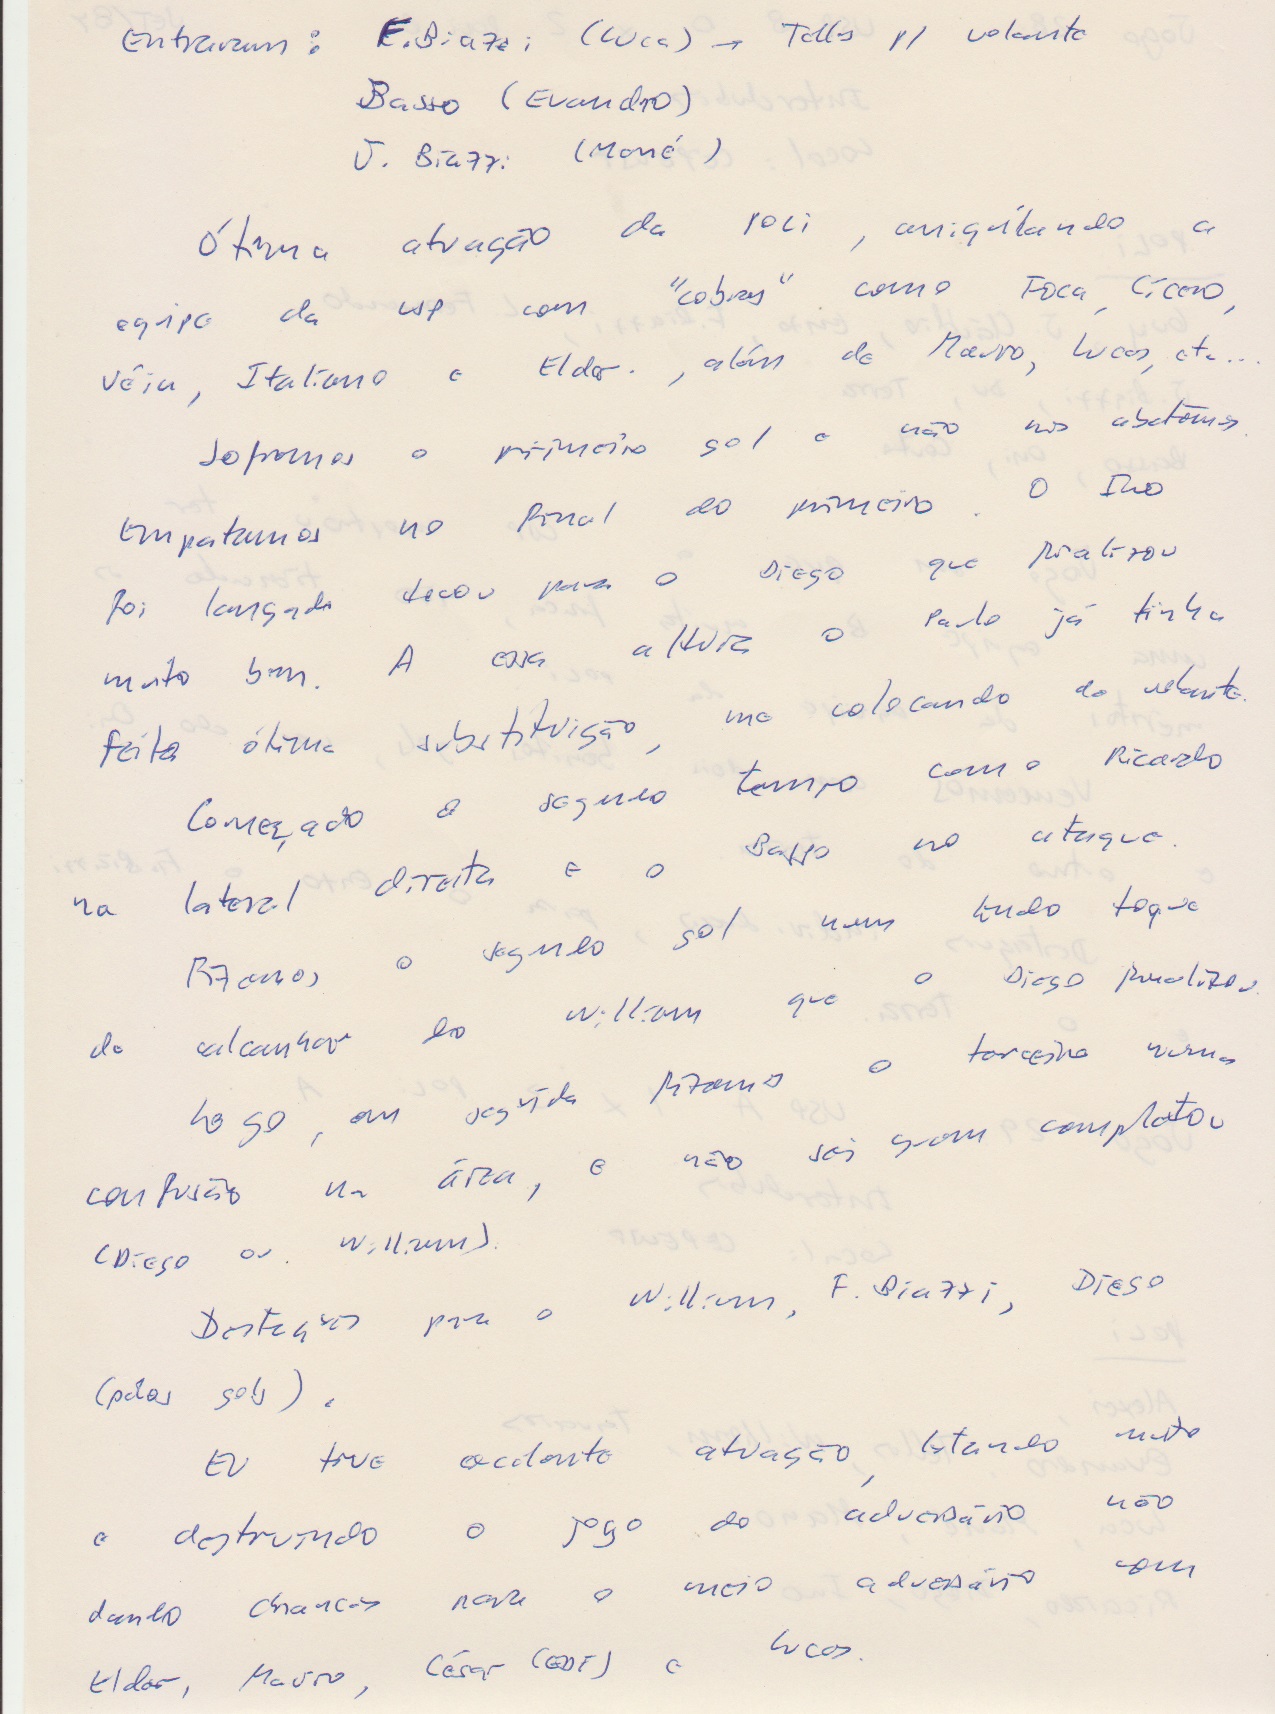 Entraram: F. Biazzi (Luca) → Telles p/ volante
Basso (Evandro)
J. Biazzi (Mané)
Ótima atuação da Poli, aniquilando a
equipe da USP com "cobras" como Foca, Cícero,
Véia, Italiano e Elder., além de Mauro, Lucas, etc...
Sofremos o primeiro gol e não nos abatemos.
Empatamos no final do primeiro. O Ino
foi lançado tocou para o Diego que finalizou
muito bem. A essa altura o Paulo já tinha
feito ótima substituição, me colocando de volante.
Começado o segundo tempo com o Ricardo
na lateral direita e o Basso no ataque.
Fizemos o segundo gol num lindo toque
de calcanhar do William que o Diego finalizou.
Logo, em seguida fizemos o terceiro numa
confusão na área, e não sei quem completou
(Diego ou William).
Destaques para o William, F. Biazzi, Diego
(pelos gols).
Eu tive excelente atuação, lutando muito
e destruindo o jogo do adversário não
dando chances para o meio adversário com
Elder, Mauro, César (EDF) e Lucas.